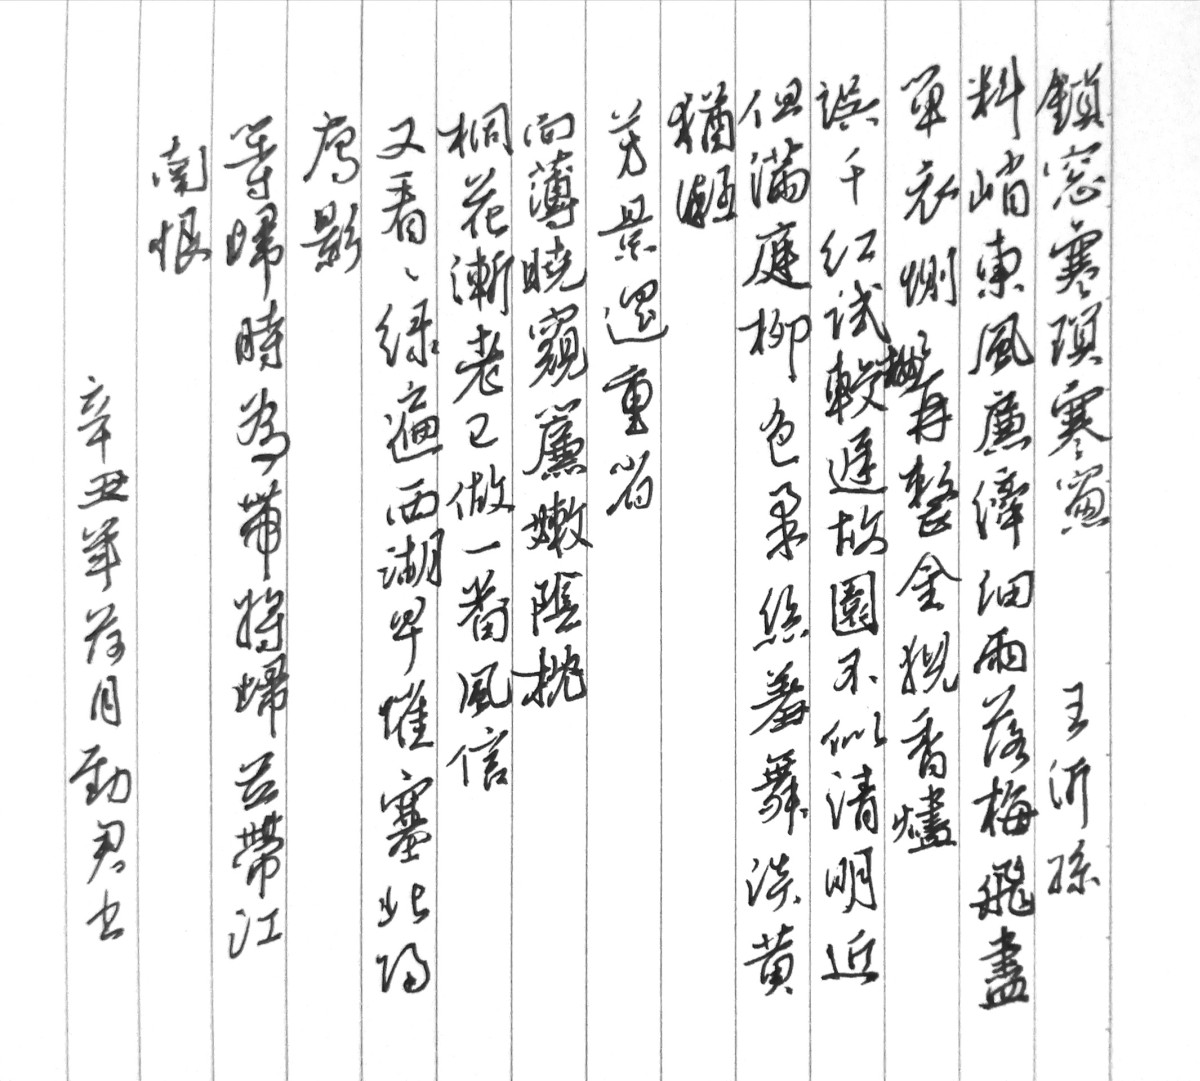 鎖窓寒 瑣寒窻 王沂孫
料峭東風廉纖細雨落梅飛盡
單衣惻惻再整金猊香燼
誤千红試粧遲故園不似清明近
但滿庭柳色柔絲羞舞淡黄
猶凝
芳景還重省
向薄曉窺簾嫩陰敧枕
桐花漸老已做一番風信
又看看绿遍西湖早催塞北歸
鴈影
等歸時為帶將歸竝帶江
南恨
辛丑年荷月勤君书